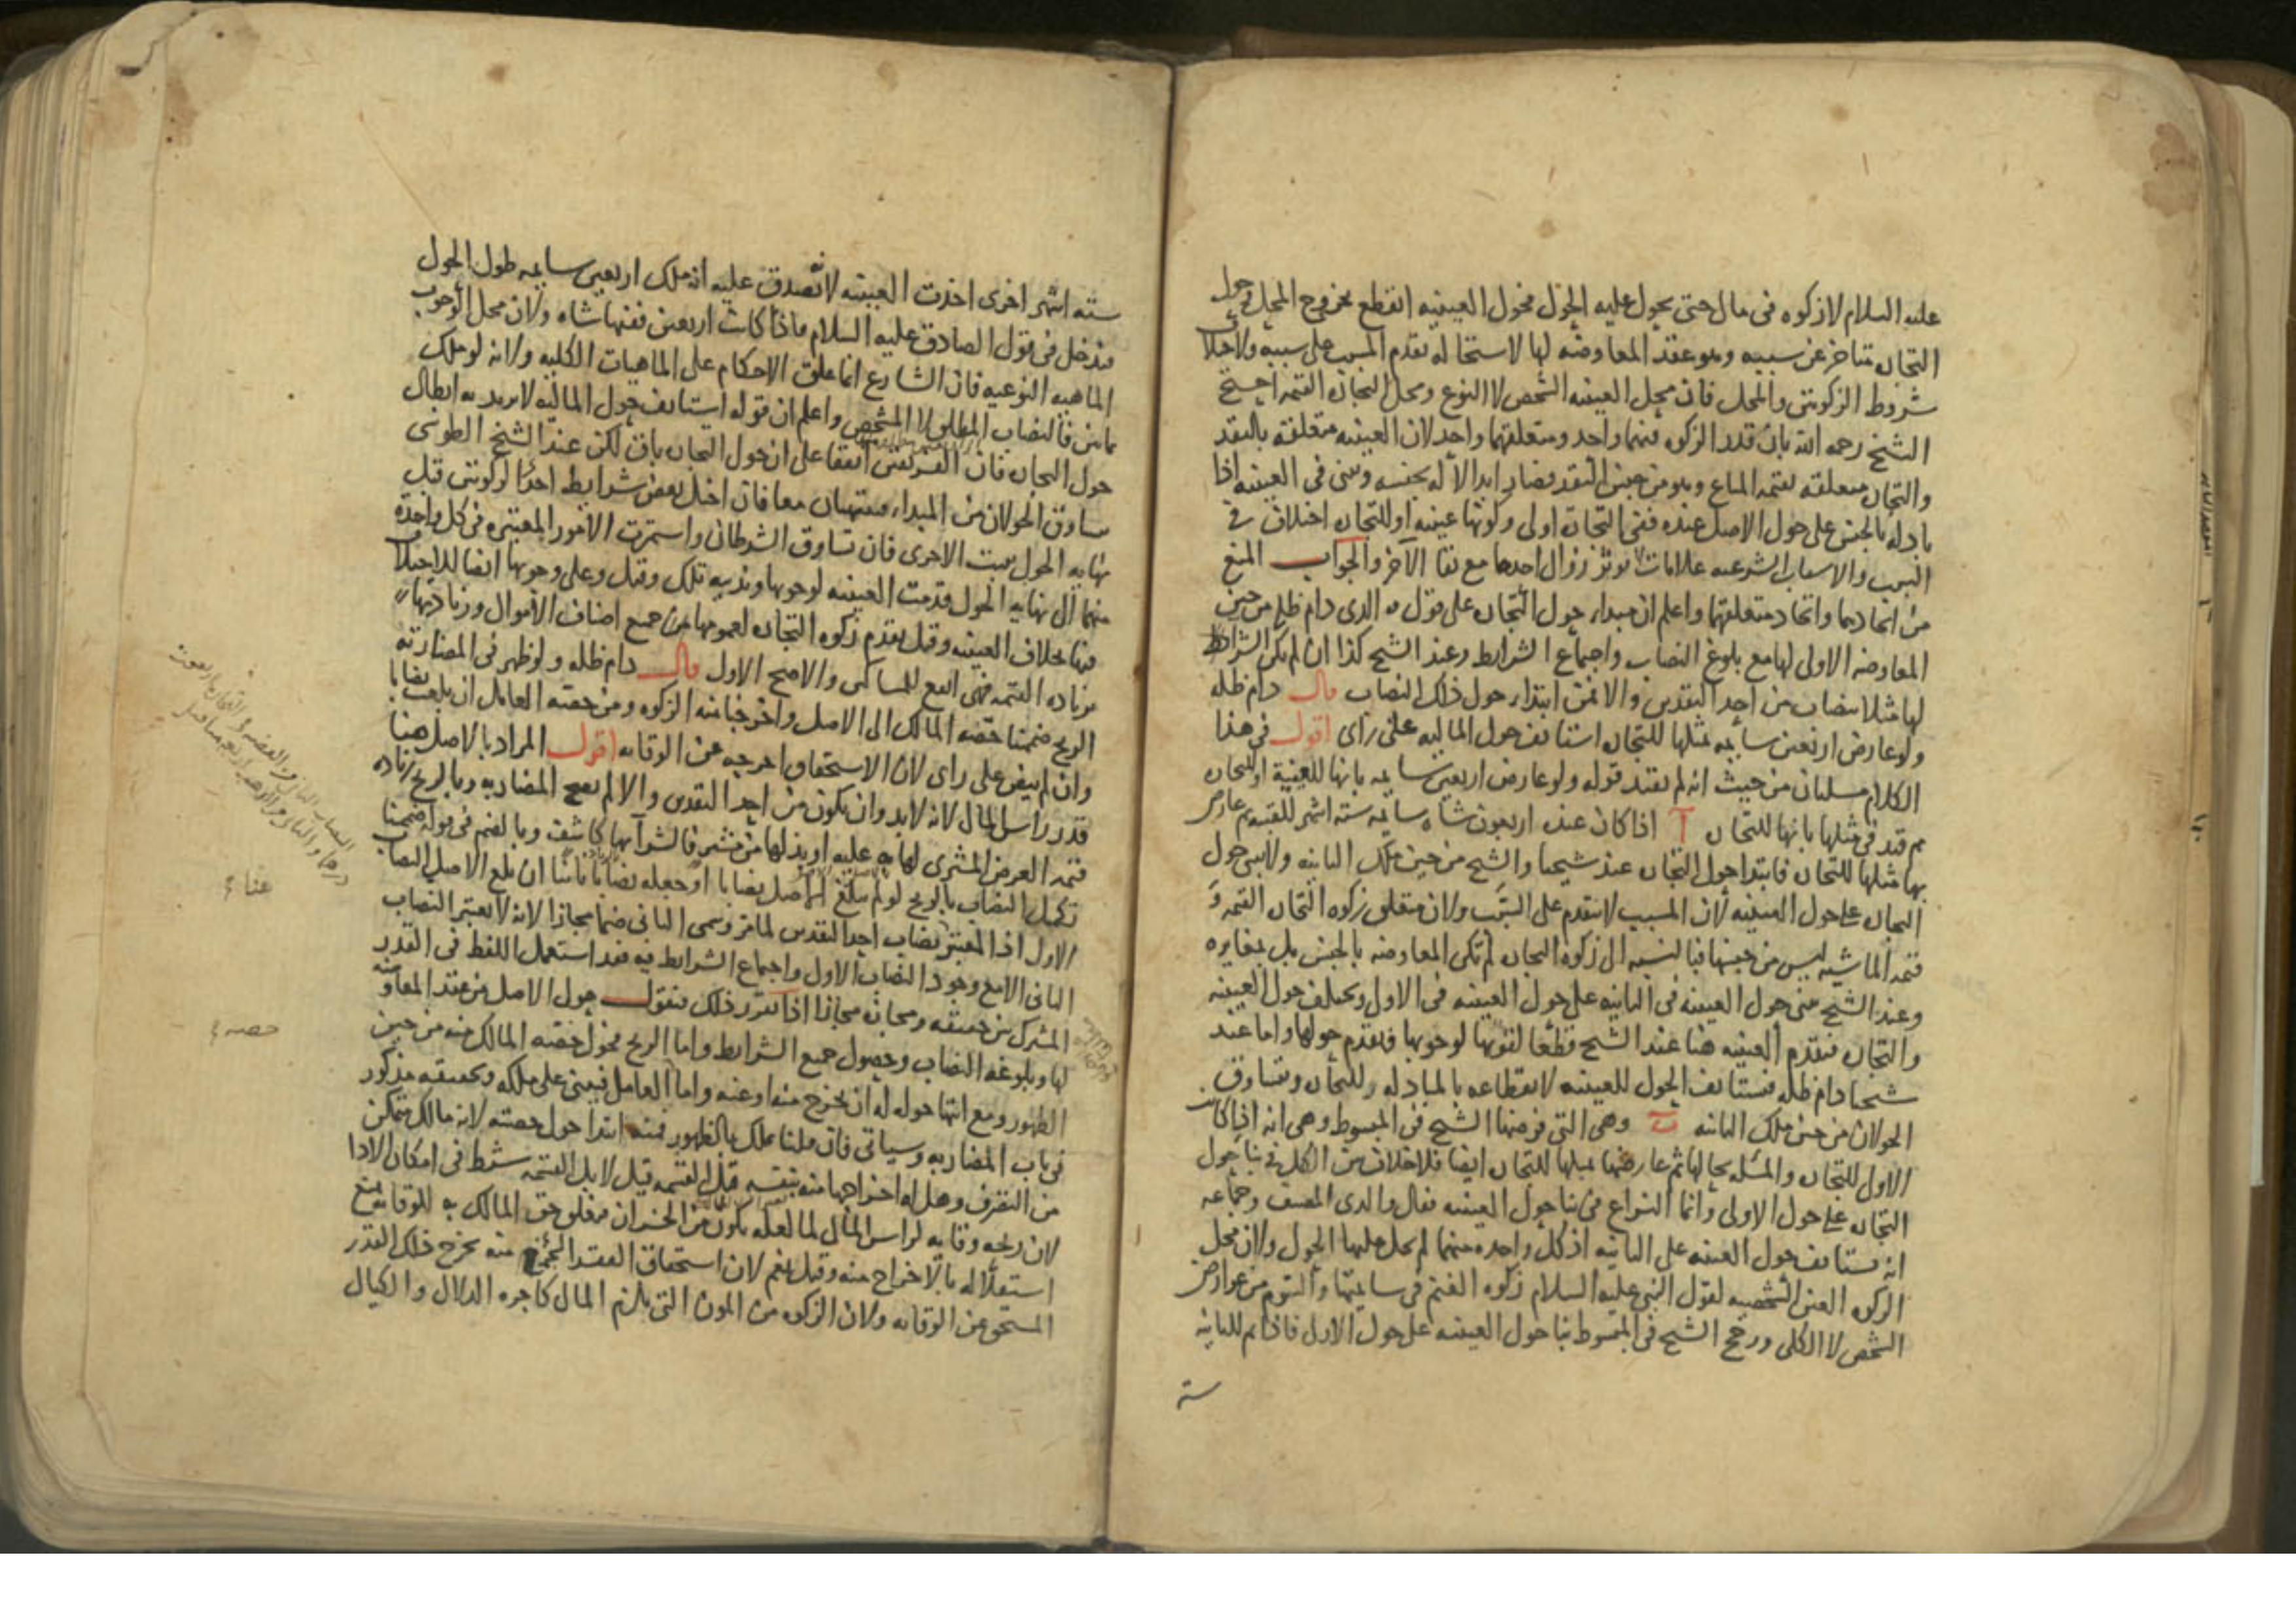 عليه السلام لا زكوة فى مال حتى يحول عليه الحول فحول العينيه انقطع بخروج المحل فحول
التجاره متاخر عن سببه وهو عقد المعاوضه لها لاستحاله تقدم المسبب على سببه ولاختلاف
شروط الزكوتين والمحل فان محل العينيه الشخص لا النوع ومحل التجاره القيمه احتج
الشيخ رحمه الله بان قدر الزكوه فيهما واحد ومتعلقهما واحد لان العينيه متعلقه بالنقد
والتجاره متعلقه بقيمه المتاع وهو من جنس النقد فصار ابدالا له بجنسه وبنى فى العينيه اذا
بادله بالجنس على حول الاصل عنده ففى التجاره اولى وكونها عينيه او للتجاره اختلاف فى
السبب والاسباب الشرعيه علامات لا يوثر زوال احدها مع بقا الآخر والجواب المنع
من اتحادهما واتحاد متعلقهما واعلم ان مبداء حول التجاره على قول والدى دام ظله من حين
المعاوضه الاولى لها مع بلوغ النصاب واجتماع الشرايط وعند الشيخ كذا ان لم يكن الشراء
لها مثلا بنصاب من احد النقدين والا فمن ابتداء حول ذلك النصاب قال دام ظله
ولو عارض اربعين سايمه بمثلها للتجاره استانف حول الماليه على راى اقول فى هذا
الكلام مسلتان من حيث انه لم يقيد قوله ولو عارض اربعين سايمه بانها للقنية او للتجاره
ثم قيد فى مثلها بانها للتجاره آ اذا كان عنده اربعون شاه سايمه سته اشهر للقنيه ثم عارض
بها مثلها للتجاره فابتدا حول التجاره عند شيخنا والشيخ من حين ملك الثانيه ولا يبنى حول
التجاره على حول العينيه لان المسبب لا يتقدم على السبب ولان متعلق زكوه التجاره القيمه و
قيمه الماشيه ليس من جنسها فبالنسبه الى زكوه التجاره لم تكن المعاوضه بالجنس بل بمغايره
وعند الشيخ يبنى حول العينيه فى الثانيه على حول العينيه فى الاول ويختلف حول العينيه
والتجاره فيقدم العينيه هنا عند الشيخ قطعا لقوتها لوجوبها وتقدم حولها واما عند
شيخنا دام ظله فيستانف الحول للعينيه لانقطاعه بالمبادله وللتجاره ويتساوق
الحولان من حين ملك الثانيه ب وهى التى فرضها الشيخ فى المبسوط وهى انه اذا كانت
الاول للتجاره والمسله بحالها ثم عارضها بمثلها للتجاره ايضا فلا خلاف من الكل فى بنا حول
التجاره على حول الاولى وانما النزاع فى بنا حول العينيه فقال والدى المصنف وجماعه
انه يستانف حول العينيه على الثانيه اذ كل واحده منهما لم يحل عليها الحول ولان محل
الزكوه العين الشخصيه لقول النبى عليه السلام زكوه الغنم فى سايمتها والسوم من عوارض
الشخص لا الكلى ورجح الشيخ فى المبسوط بنا حول العينيه على حول الاول فاذا تم للثانيه
سته
سته اشهر اخرى اخذت العينيه لانه تصدق عليه انه ملك اربعين سايمه طول الحول
فيدخل فى قول الصادق عليه السلام فاذا كانت اربعين ففيها شاه ولان محل الوجوب
الماهيه النوعيه فان الشارع انما علق الاحكام على الماهيات الكليه ولانه لو ملك
مايتين فالنصاب المطلق لا المشخص واعلم ان قوله استانف حول الماليه لا يريد به ابطال
حول التجاره فان الفريقين اتفقا على ان حول التجاره باق لكن عند الشيخ الطوسى
يتساوق الحولان من المبداء وينتهيان معا فان اختل بعض شرايط احدى الزكوتين قبل
نهايه الحول ثبتت الاخرى فان تساوق الشرطان واستمرت الامور المعتبره فى كل واحدة
منهما الى نهايه الحول قدمت العينيه لوجوبها وندبيه تلك وقيل وعلى وجوبها ايضا للاختلاف
فيها بخلاف العينيه وقيل يقدم زكوه التجاره لعمومها من جميع اصناف الاموال وزيادتها
بزياده القيمه فهى انفع للمساكين والاصح الاول قال دام ظله ولو ظهر فى المضاربه
الربح ضممنا حصه المالك الى الاصل واخرجنا منه الزكوه ومن حصه العامل ان بلغت نصابا
وان لم ينض على راى لان الاستحقاق اخرجه عن الوقايه اقول المراد بالاصل هنا
قدر راس المال لانه لابد وان يكون من احد النقدين والا لم يصح المضاربه وبالربح زياده
قيمه العرض المشترى لها به عليه او بذلها من مشتر فالشرآ بها كاشف وبالضم فى قوله ضممنا
تكميل النصاب بالربح لو لم يبلغ الاصل نصابا او جعله نصابا ثانيا ان بلغ الاصل النصاب
الاول اذ المعتبر نصاب احد النقدين لما مر وسمى الثانى ضما مجازا لانه لا يعتبر النصاب
الثانى الا مع وجود النصاب الاول واجتماع الشرايط فيه فقد استعمل اللفظ فى القدر
المشترك بين حقيقه ومجازه مجازا اذا تقرر ذلك فنقول حول الاصل من عقد المعاوضه
لها وبلوغه النصاب وحصول جميع الشرايط واما الربح فحول حصه المالك منه من حين
الظهور ومع انتها حوله له ان يخرج منه او عنه واما العامل فيبنى على ملكه وتحقيقه مذكور
فى باب المضاربه وسياتى فان قلنا يملك بالظهور فمنه ابتدا حول حصته لانه مالك متمكن
من التصرف وهل له اخراجها منه بنفسه قبل القسمه قيل لا بل القسمه شرط فى امكان الادا
لان ربحه وقايه لراس المال لما لعله يكون من الخسران فيعلق حق المالك به للوقايه يمنع
استقلاله بالاخراج منه وقيل نعم لان استحقاق الفقرا لجزء منه يخرج ذلك القدر
المستحق عن الوقايه ولان الزكوه من المون التى يلزم المال كاجره الدلال والكيال